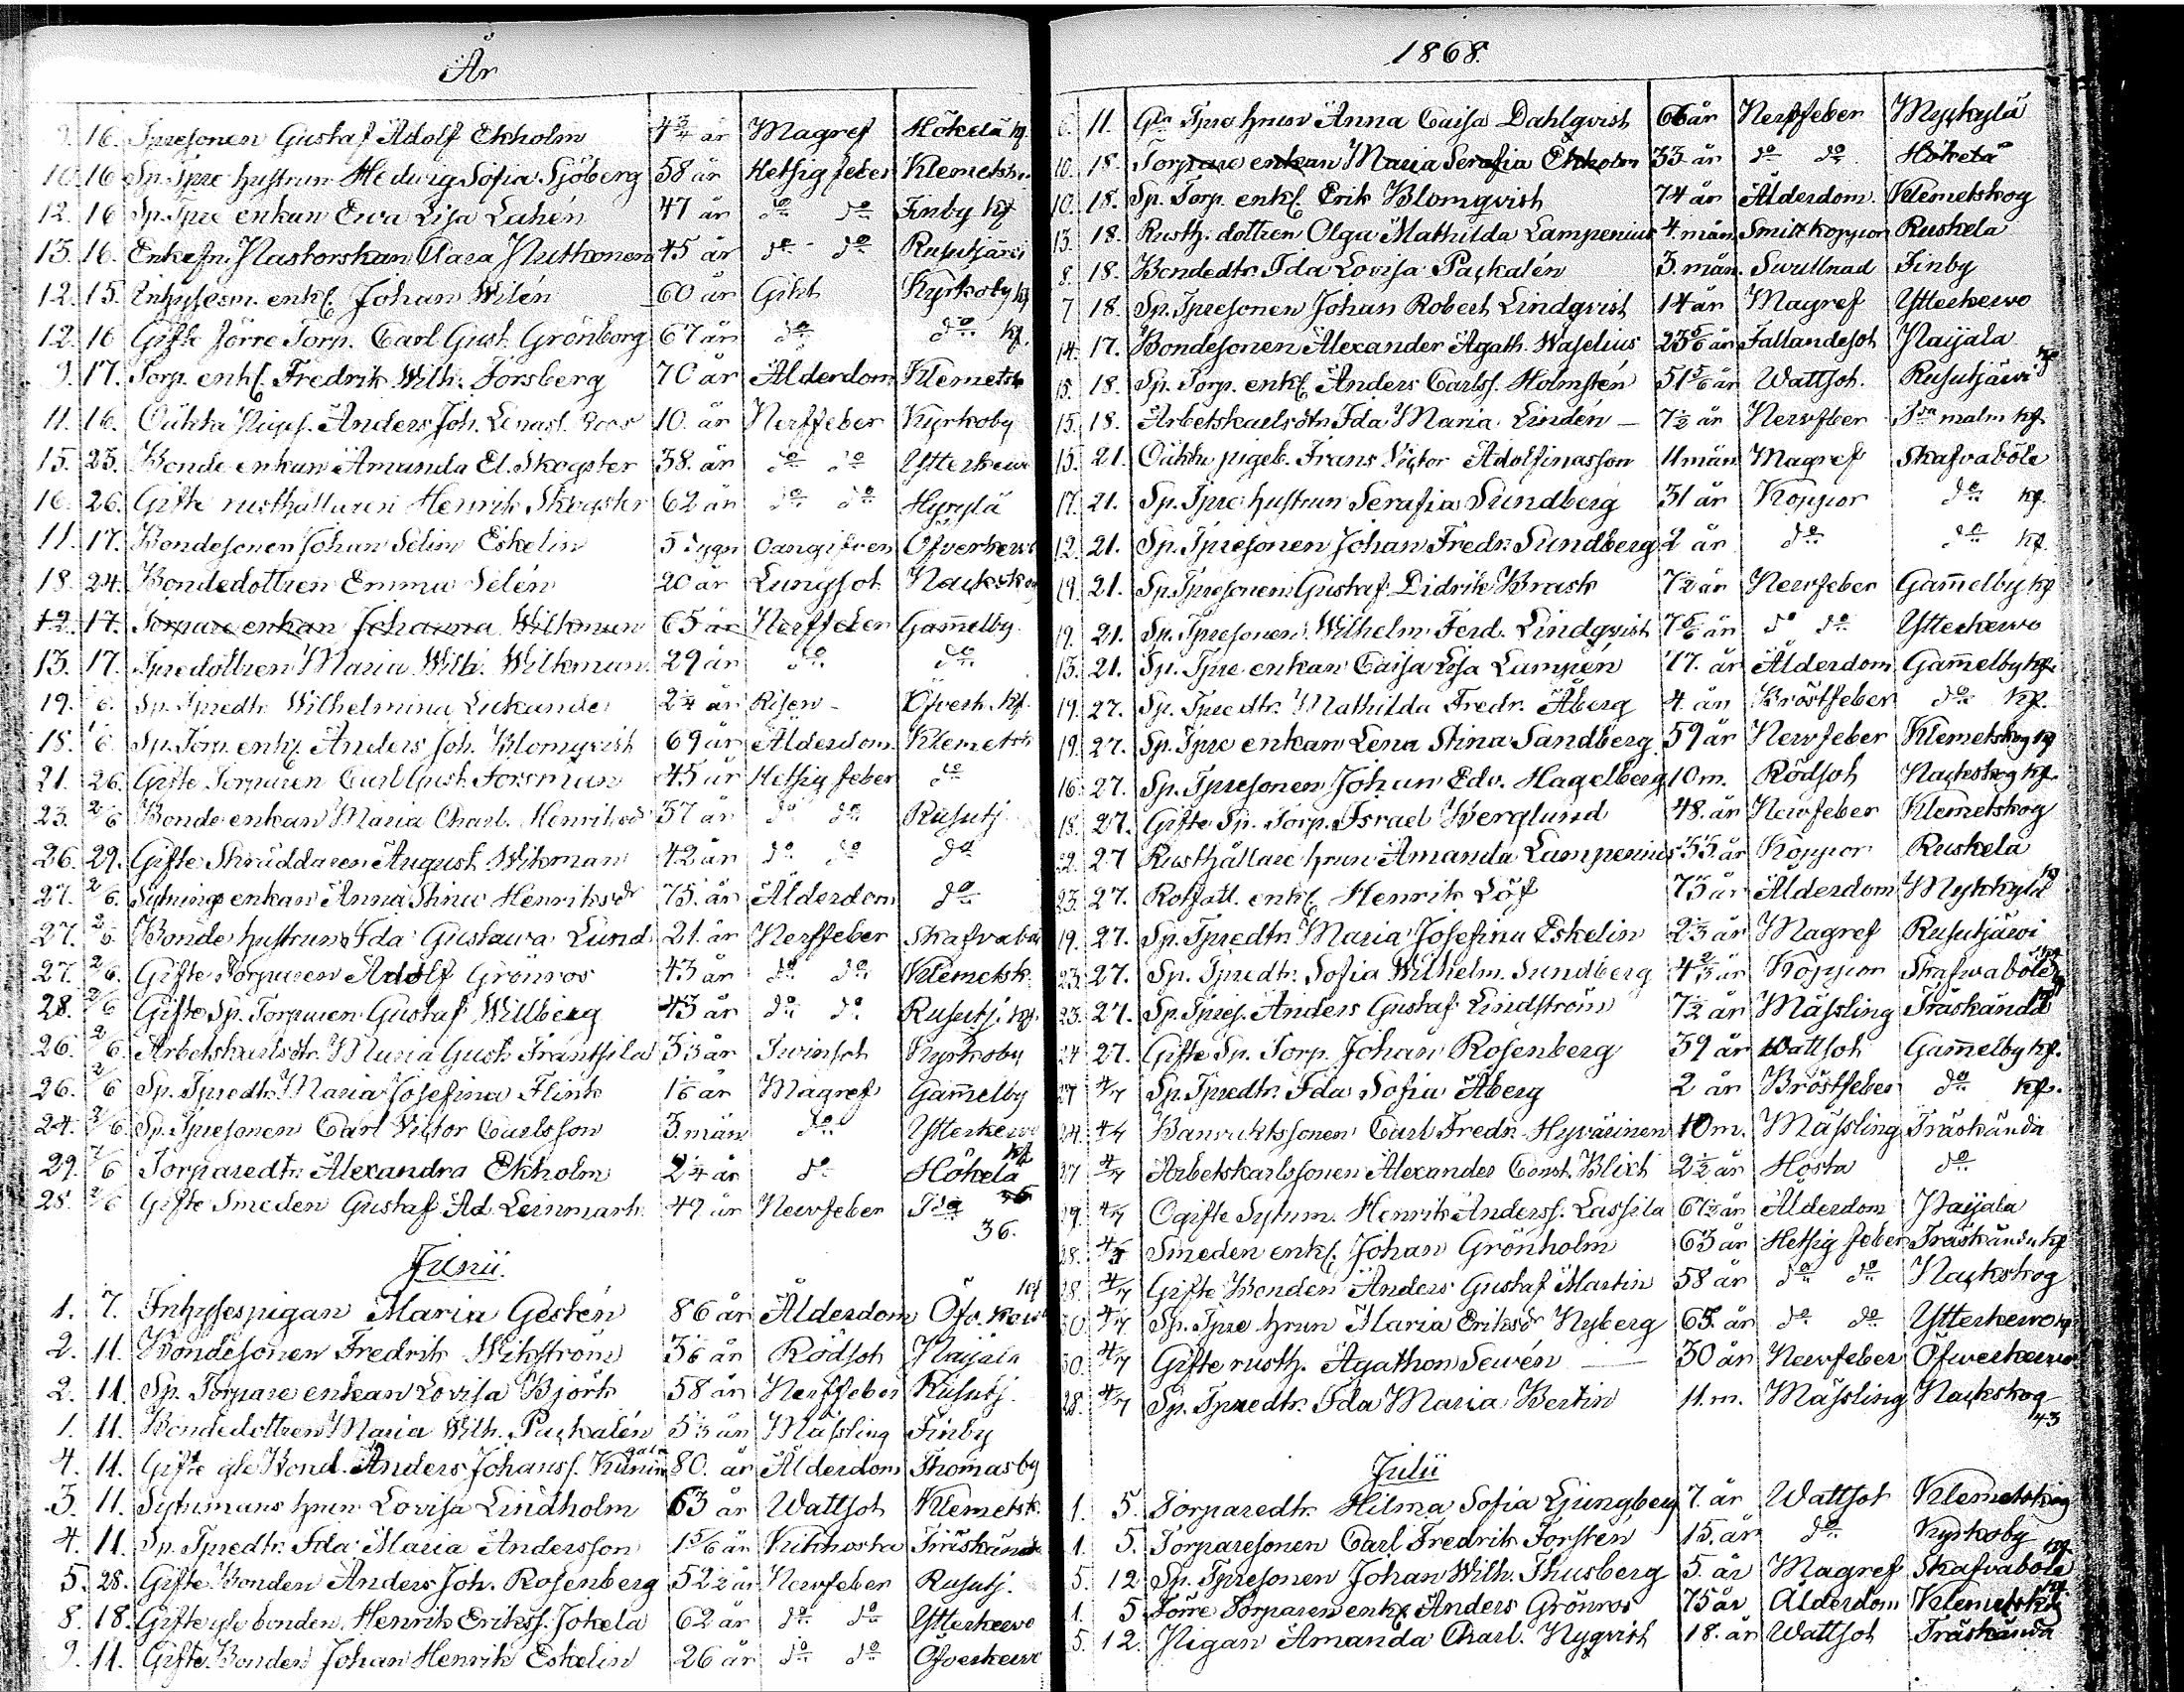 År
9. 16. Tpresonen Gustaf Adolf Ekholm 4 3/4 år Magref Hökelä kf
10. 16 Sp. Tpre hustrun Hedvig Sofia Sjöberg 58 år Hetsig feber Klemetsk
12. 16 Sp. Tpre enkan Ewa Lisa Lahén 47 år do do Finby kf
13. 16. Enkefr. Pastorskan Clara 45 år do do Rusutjärvi
12. 15. Inhysesm. enkl. Johan Wilén 60 år Gikt Kyrkoby kf
12. 16 Gifte förre Torp. Carl Gust. Grönborg 67 år do do kf.
9. 17. Torp. enkl. Fredrik Wilh. Forsberg 70 år Ålderdom Klemetsk
11. 16. Oäkta Anders Joh. Roos 10. år Nerffeber Kyrkoby
15. 23. Bonde enkan Amanda El. Skogster 38. år do do Ytterkerv
16. 26. Gifte rusthållaren Henrik Skogster 62 år do do Hyrylä
11. 17. Bondesonen Johan Selim Eskelin 5 dygn Oangifven Öfverkerv
18. 24. Bondedottren Emma Selén 20 år Lungsot Nackskog
12. 17. Torpare enkan Johanna Wilkman 65 år Nerffeber Gam̄elby
13. 17. Tpredottren Maria Wilh. Wilkman 29 år do do
19. 6. Sp. Tpredtr. Wilhelmina Lukander 2 1/4 år Risen Öfverk. kf.
18. 6. Sp. Torp. enkl. Anders Joh. Blomqvist 69 år Ålderdom Klemetsk
21. 26. Gifte Torparen Carl Gust. Forsman 45 år Hetsig feber do
23. 2/6 Bonde enkan Maria Charl. Henriksdr 57 år do do Rusutj.
26. 29. Gifte Skräddaren August Wikman 42 år do do do
27. 2/6. Sytnings enkan Anna Stina Henriksdr 75. år Ålderdom do
27. 2/6. Bonde hustrun Ida Gustava Lund 21. år Nerffeber Skafvabö
27. 2/6. Gifte Torparen Adolf Grönroos 43 år do do Klemetsk.
28. 2/6 Gifte Sp. Torparen Gustaf Willberg 43 år do do Rusutj. kf.
26. 2/6. Arbetskarlsdtr. Maria Gust. Frantsila 3 1/3 år Twinsot Kyrkoby
26. 2/6 Sp. Tpredtr. Maria Josefina Flink 1 1/6 år Magref Gam̄elby
24. 2/6. Sp. Tpresonen Carl Victor Carlsson 3. mån do Ytterkerv
29. 7/6 Torparedtr. Alexandra Ekholm 2 1/4 år do Hökelä kf
28. 2/6 Gifte Smeden Gustaf Ad. Leinmark 49 år Nervfeber Ida
36.
Junii.
1. 7. Inhysespigan Maria Gestén 86 år Ålderdom Öfv. kerv kf
2. 11. Bondesonen Fredrik Wikström 3 5/6 år Rödsot Paijala
2. 11. Sp. Torpare enkan Lovisa Björk 58 år Nerffeber Rusutj.
1. 11. Bondedottren Maria Wilh. Packalén 5 1/3 år Mässling Finby
4. 11. Gifte gle Bond. Anders Johanss. Kunin gala 80. år Ålderdom Thomasby
3. 11. Sytnimans hrun Lovisa Lindholm 63 år Wattsot Klemetsk.
4. 11. Sp. Tpredtr. Ida Maria Andersson 1 5/6 år Kikhosta Träskända
5. 28. Gifte Bonden Anders Joh. Rosenberg 52 1/2 år Nervfeber Rusutj.
8. 18. Gifte gle bonden Henrik Erikss. Jokela 62 år do do Ytterkervo
9. 11. Gifte Bonden Johan Henrik Eskelin 26 år do do Öfverkerv
1868.
6. 11. Gla Tpre hrun Anna Caisa Dahlqvist 66 år Nerffeber Myckylä
10. 18. Torpare enkan Maria Serafia Ekholm 33 år do do Hökelä
10. 18. Sp. Torp. enkl. Erik Blomqvist 74 år Ålderdom. Klemetskog
13. 18. Rusth. dottren Olga Mathilda Lampenius 4. mån Smittkoppor Ruskela
8. 18. Bondedtr. Ida Lovisa Packalén 3. mån. Swullnad Finby
7 18. Sp. Tpresonen Johan Robert Lindqvist 14 år Magref Ytterkervo
14. 17. Bondesonen Alexander Agath. Waselius 23 5/6 år Fallandesot Paijala
15. 18. Sp. Torp. enkl. Anders Carlss. Holmstén 51 5/6 år Wattsot. Rusutjärvi kf
15. 18. Arbetskarlsdtr. Ida Maria Lindén 7 1/2 år Nervfber Ida malm kf.
15. 21. Oäkta pigeb. Frans Victor Adolfinasson 11 mån Magref Skafvaböle
17. 21. Sp. Tpre hustrun Serafia Sundberg 31 år Koppor do kf.
12. 21. Sp. Tpresonen Johan Fredr. Sundberg 2 år do do kf.
19. 21. Sp. Tpresonen Gustaf Didrik Brask 7 1/2 år Nervfeber Gam̄elby kf
19. 21. Sp. Tpresonen Wilhelm Ferd. Lindqvist 7 5/6 år do do Ytterkervo
13. 21. Sp. Tpre enkan Caisa Lisa Lampén 77. år Ålderdom Gam̄elby kf.
19. 27. Sp. Tpredtr. Mathilda Fredr. Åberg 4 år Bröstfeber do kf.
19. 27. Sp. Tpre enkan Lena Stina Sandberg 59 år Nervfeber Klemetskog kf
16. 27. Sp. Tpresonen Johan Edv. Hagelberg 10 m. Rödsot Nackskog kf.
18. 27. Gifte Sp. Torp. Israel Berglund 48. år Nervfeber Klemetskog
22. 27 Rusthållare hrun Amanda Lampenius 35 år Koppor Ruskela
23. 27. Rotfatt. enkl. Henrik Löf 73 år Ålderdom Mykkylä kf
19. 27. Sp. Tpredtr. Maria Josefina Eskelin 2 2/3 år Magref Rusutjärvi
23. 27. Sp. Tpredtr. Sofia Wilhelm. Sundberg 4 2/3 år Koppor Skafvaböle kf
23. 27. Sp. Tpres. Anders Gustaf Lindström 7 1/2 år Mässling Träskända kf
24 27. Gifte Sp. Torp. Johan Rosenberg 39 år Wattsot Gam̄elby kf.
27 4/7 Sp. Tpredtr. Ida Sofia Åberg 2 år Bröstfeber do kf.
24. 4/7 Banvaktssonen Carl Fredr. Hyvärinen 10 m. Mässling Träskända
27 4/7 Arbetskarlssonen Alexander Const. Blixt 2 1/2 år Hosta do
29. 4/7 Ogifte Sytnm. Henrik Anderss. Lassila 67 1/2 år Ålderdom Paijala
28. 4/7 Smeden enkl. Johan Grönholm 63 år Hetsig feber Träskända kf
28. 4/7 Gifte Bonden Anders Gustaf Martin 58 år do do Nackskog
30 4/7 Sp. Tpre hrun Maria Eriksdr Nyberg 65. år do do Ytterkervo kf
30. 4/7 Gifte rusth. Agathon Sewén 30 år Nervfeber Öfwerkervo
28. 4/7 Sp. Tpredtr. Ida Maria Bertin 11. m. Mässling Nackskog
43
Julii
1. 5. Torparedtr. Hilma Sofia Ljungberg 7. år Wattsot Klemetskog
1. 5. Torparesonen Carl Fredrik Forstén 15. år do Kyrkoby
5. 12. Sp. Tpresonen Johan Wilh. Thusberg 5. år Magref Skafvaböle kf
1. 5 Förre Torparen enkl Anders Grönroos 75 år Ålderdom Klemetsk kf
5. 12. Pigan Amanda Charl. Nyqvist 18. år Wattsot Träskända